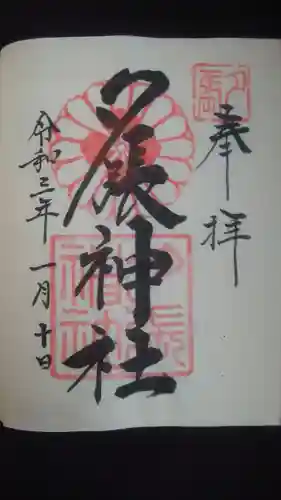 奉拝
夕張神社
令和三年一月十日